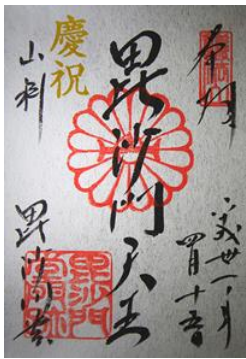 奉拝
平成三十一年
四月十五日
毘沙門天王
慶祝
山科
毘沙門堂
毘沙門
堂跡